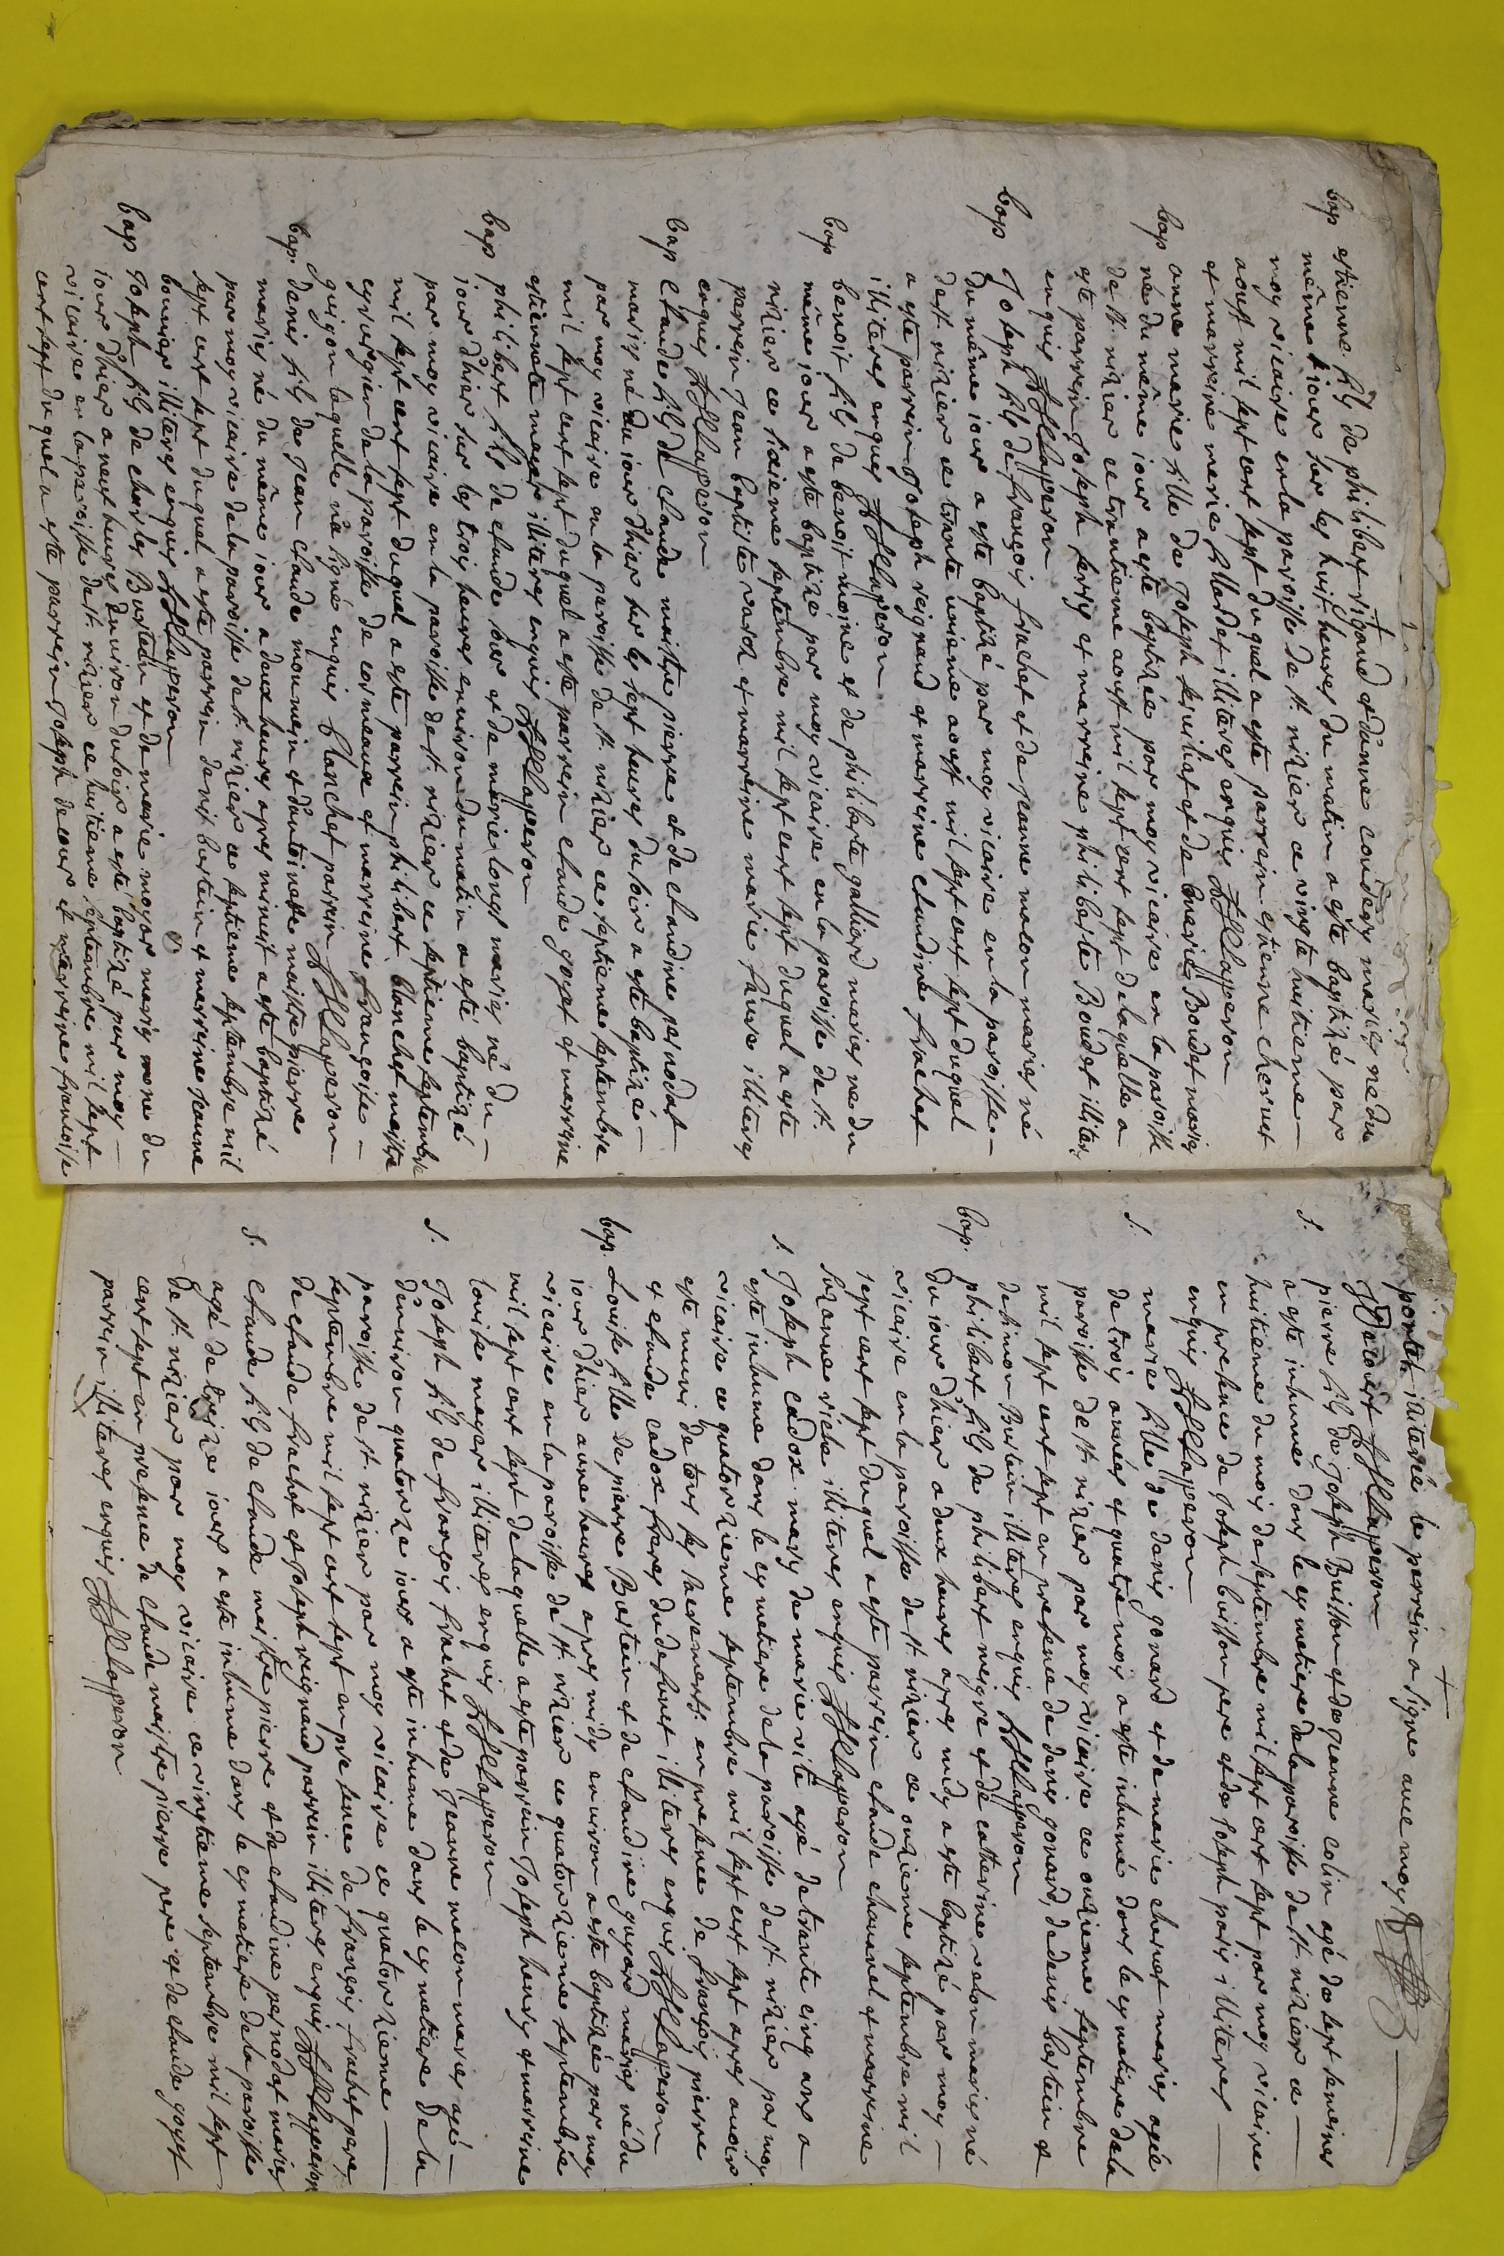 bap estienne fils de philibert rigaud et danne coindery mariés né du
même jour sur les huit heures du matin a esté baptizé par
moy vicaire en la paroisse de st. nizier ce vingte huitieme
aoust mil sept cent sept duquel a este parrein estienne cheruet
et marreine marie fillardet illiteres enquis Lappeson
bap anne marie fille de Joseph et de marie Boudet mariés
né du même iour a esté baptizée par moy vicaire en la paroisse
de st. nizier ce trentieme aoust mil sept cent sept de laquelle a
este parrein Joseph ferry et marreine philiberte Boudet illiteres
enquis Lappeson
bap Joseph fils de françois frachet et de jeanne macon mariés né
du même iour a este baptizé par moy vicaire en la paroisse
de st. nizier ce trente unieme aoust mil sept cent sept duquel
a esté parrein Joseph reignaud et marreine claudine frachet
illiteres enquis Lappeson
bap benoit fils de benoit moine et de philiberte galliard mariés né du
même iour a este baptizé par moy vicaire en la paroisse de st.
nizier ce sixieme septembre mil sept cent sept duquel a esté
parrein jean baptiste et marreine marie faure illiteres
enquis Lappeson
bap claude fils de claude maistre pierre et de claudine pernodat
mariés né du iour d'hier sur les sept heures du soir a este baptizé
par moy vicaire en la paroisse de st. nizier ce septieme septembre
mil sept cent sept duquel a este parrein claude goyet et marreine
estiennete mayer illiteres enquis Lappeson
bap philibert fils de claude et de marie longi mariés né du
iour d'hier sur les trois heures environ du matin a esté baptizé
par moy vicaire en la paroisse de st. nizier ce septieme septembre
mil sept cent sept duquel a este parrein philibert blanchet maistre
cyrurgien de la paroisse de cormeaux et marreine françoise
guigon laquelle n'a signé enquis blanchet parrein Lappeson
bap. denis fils de jean claude monnein et d'antoinette maistre pierre
mariés né du même iour a deux heures apres minuit a este baptizé
par moy vicaire de la paroisse de st. nizier ce septieme septembre mil
sept cent sept duquel a este parrein denis bertein et marreine jeanne
bonnier illiteres enquis Lappeson
bap Joseph fils de charles Burtein et de marie moyar mariés né du
iour d'hier a neuf heures environ du soir a esté baptizé par moy
vicaire en la paroisse de st. nizier ce huitieme septembre mil sept
cent sept duquel a este parrein Joseph de cour et marreine françoise
illiterée le parrein a signé avec moy
J Decourt Lappeson
S. pierre fils de Joseph Buisson et de jeanne colin agé de sept semaines
a esté inhumé dans le cymetiere de la paroisse de st. nizier ce
huitieme du mois de septembre mil sept cent sept par moy vicaire
en presence de Joseph buisson pere et de Joseph paris illiteres
enquis Lappeson
S. marie fille de denis gonard et de marie cheruet mariés agée
de trois années et quatre mois a este inhumé dans le cymetiere de la
paroisse de st. nizier par moy vicaire ce onzieme septembre
mil sept cent sept en presence de denis gonard, de denis bertein et
de simon Burtein illiteres enquis Lappeson
bap. philibert fils de philibert mesgre et de catherine velon mariés né
du iour d'hier a deux heures apres midy a este baptizé par moy
vicaire en la paroisse de st. nizier ce onzieme septembre mil
sept cent sept duquel a este parrein claude chauanel et marreine
suzanne viele illiteres enquis Lappeson
S. Joseph cadox mary de marie vite agé de trente cinq ans a
este inhumé dans le cymetiere de la paroisse de st. nizier par moy
vicaire ce quatorzieme septembre mil sept cent sept apres auoir
este muni de tous les sacrements en presence de françois pierre
et claude cadox freres du defunct illiteres enquis Lappeson
bap. Louise fille de pierre Bastein et de claudine guyard mariés né du
iour d'hier a une heures apres midy environ a este baptizée par moy
vicaire en la paroisse de st. nizier ce quatorzieme septembre
mil sept cent sept de laquelle a este parrein Joseph henry et marreine
louise mayer illiteres enquis Lappeson
S. Joseph fils de françois frachet et de jeanne macon mariés agé
d'environ quatorze iours a este inhumé dans le cymetiere de la
paroisse de st. nizier par moy vicaire ce quatorzieme
septembre mil sept cent sept en presence de françois frachet pere
de claude frachet et Joseph reignaud parrein illiteres enquis Lappeson
S. claude fils de claude maistre pierre et de claudine pernodat mariés
agé de treize iours a este inhumé dans le cymetiere de la paroisse
de st. nizier par moy vicaire ce vingtieme septembre mil sept
cent sept en presence de claude maistre pierre pere et de claude goyet
parrein illiteres enquis Lappeson